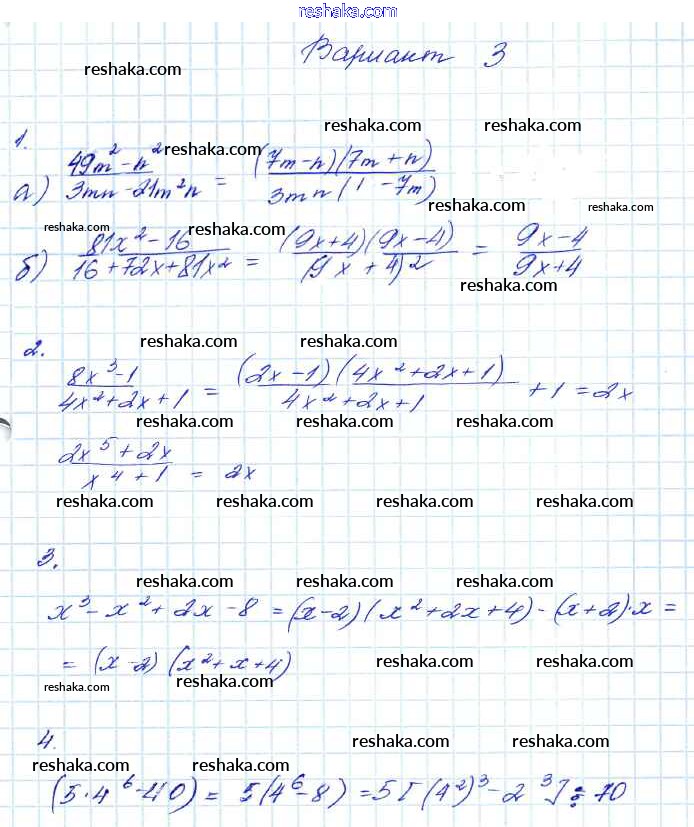 reshaka.com
Вариант 3
reshaka.com
reshaka.com reshaka.com
1.
а) (49m² - n²)/(3mn - 21m²n) = ((7m-n)(7m+n))/(3mn(1-7m))
reshaka.com reshaka.com
reshaka.com reshaka.com
reshaka.com reshaka.com
б) (81x² - 16)/(16+72x+81x²) = ((9x+4)(9x-4))/((9x+4)²) = (9x-4)/(9x+4)
reshaka.com
2.
reshaka.com reshaka.com
(8x³-1)/(4x²+2x+1) = ((2x-1)(4x²+2x+1))/(4x²+2x+1) + 1 = 2x
reshaka.com reshaka.com reshaka.com
(2x⁵+2x)/(x⁴+1) = 2x
reshaka.com reshaka.com reshaka.com reshaka.com
3.
reshaka.com reshaka.com reshaka.com
x³-x²+2x-8 = (x-2)(x²+2x+4)-(x+2)·x =
= (x-2)(x²+x+4)
reshaka.com reshaka.com
reshaka.com reshaka.com
4.
reshaka.com reshaka.com
reshaka.com reshaka.com
(5·4⁶-40) = 5(4⁶-8) = 5[(4²)³-2³] ⋮ 70